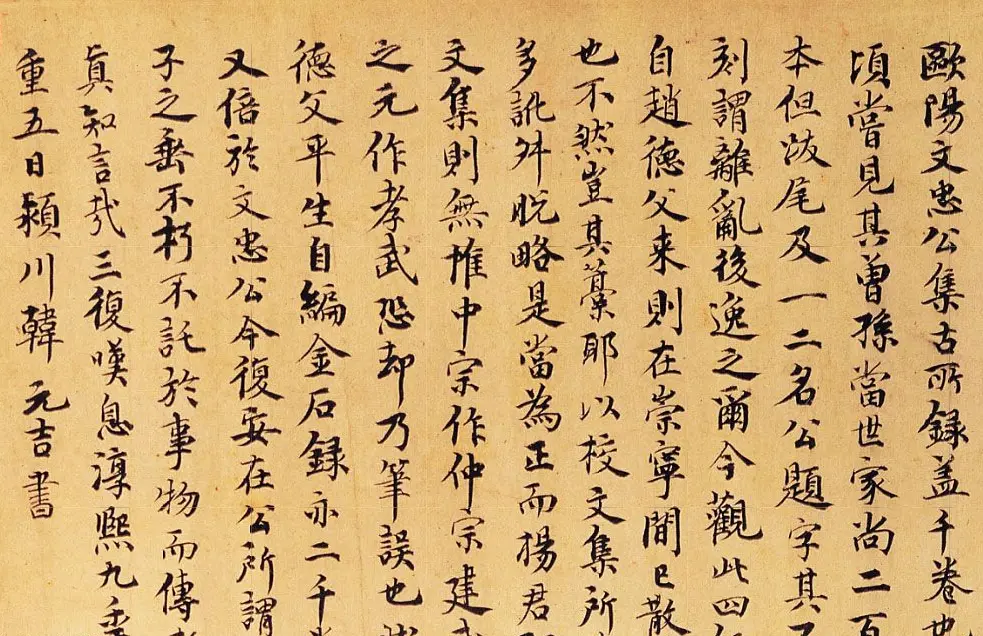 歐陽文忠公集古所録蓋千卷也
頃嘗見其曽孫當世家尚二百
本但㳊尾及一二名公題字其
刻謂離亂後逸之爾今觀此四
自趙德父来則在崇寧間已散
也不然豈其藁耶以校文集所
多訛舛脱略是當為正而揚君
文集則無惟中宗作仲宗建武
之元作孝武恐却乃筆誤也
德父平生自編金石録亦二千
又倍於文忠公今復安在公所謂
子之垂不朽不託於事物而傳
真知言哉三復嘆息淳熙九季
重五日潁川韓元吉書